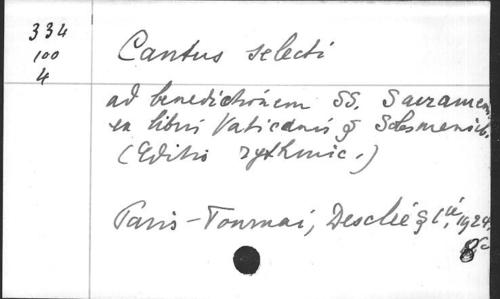 334
100
4
Cantus selecti
ad benedictionem SS. Sacramen
ex libris Vaticanis & Solesmensib.
(Editio rythmic.)
Paris-Tournai, Desclée & Cie, 1924.
8°